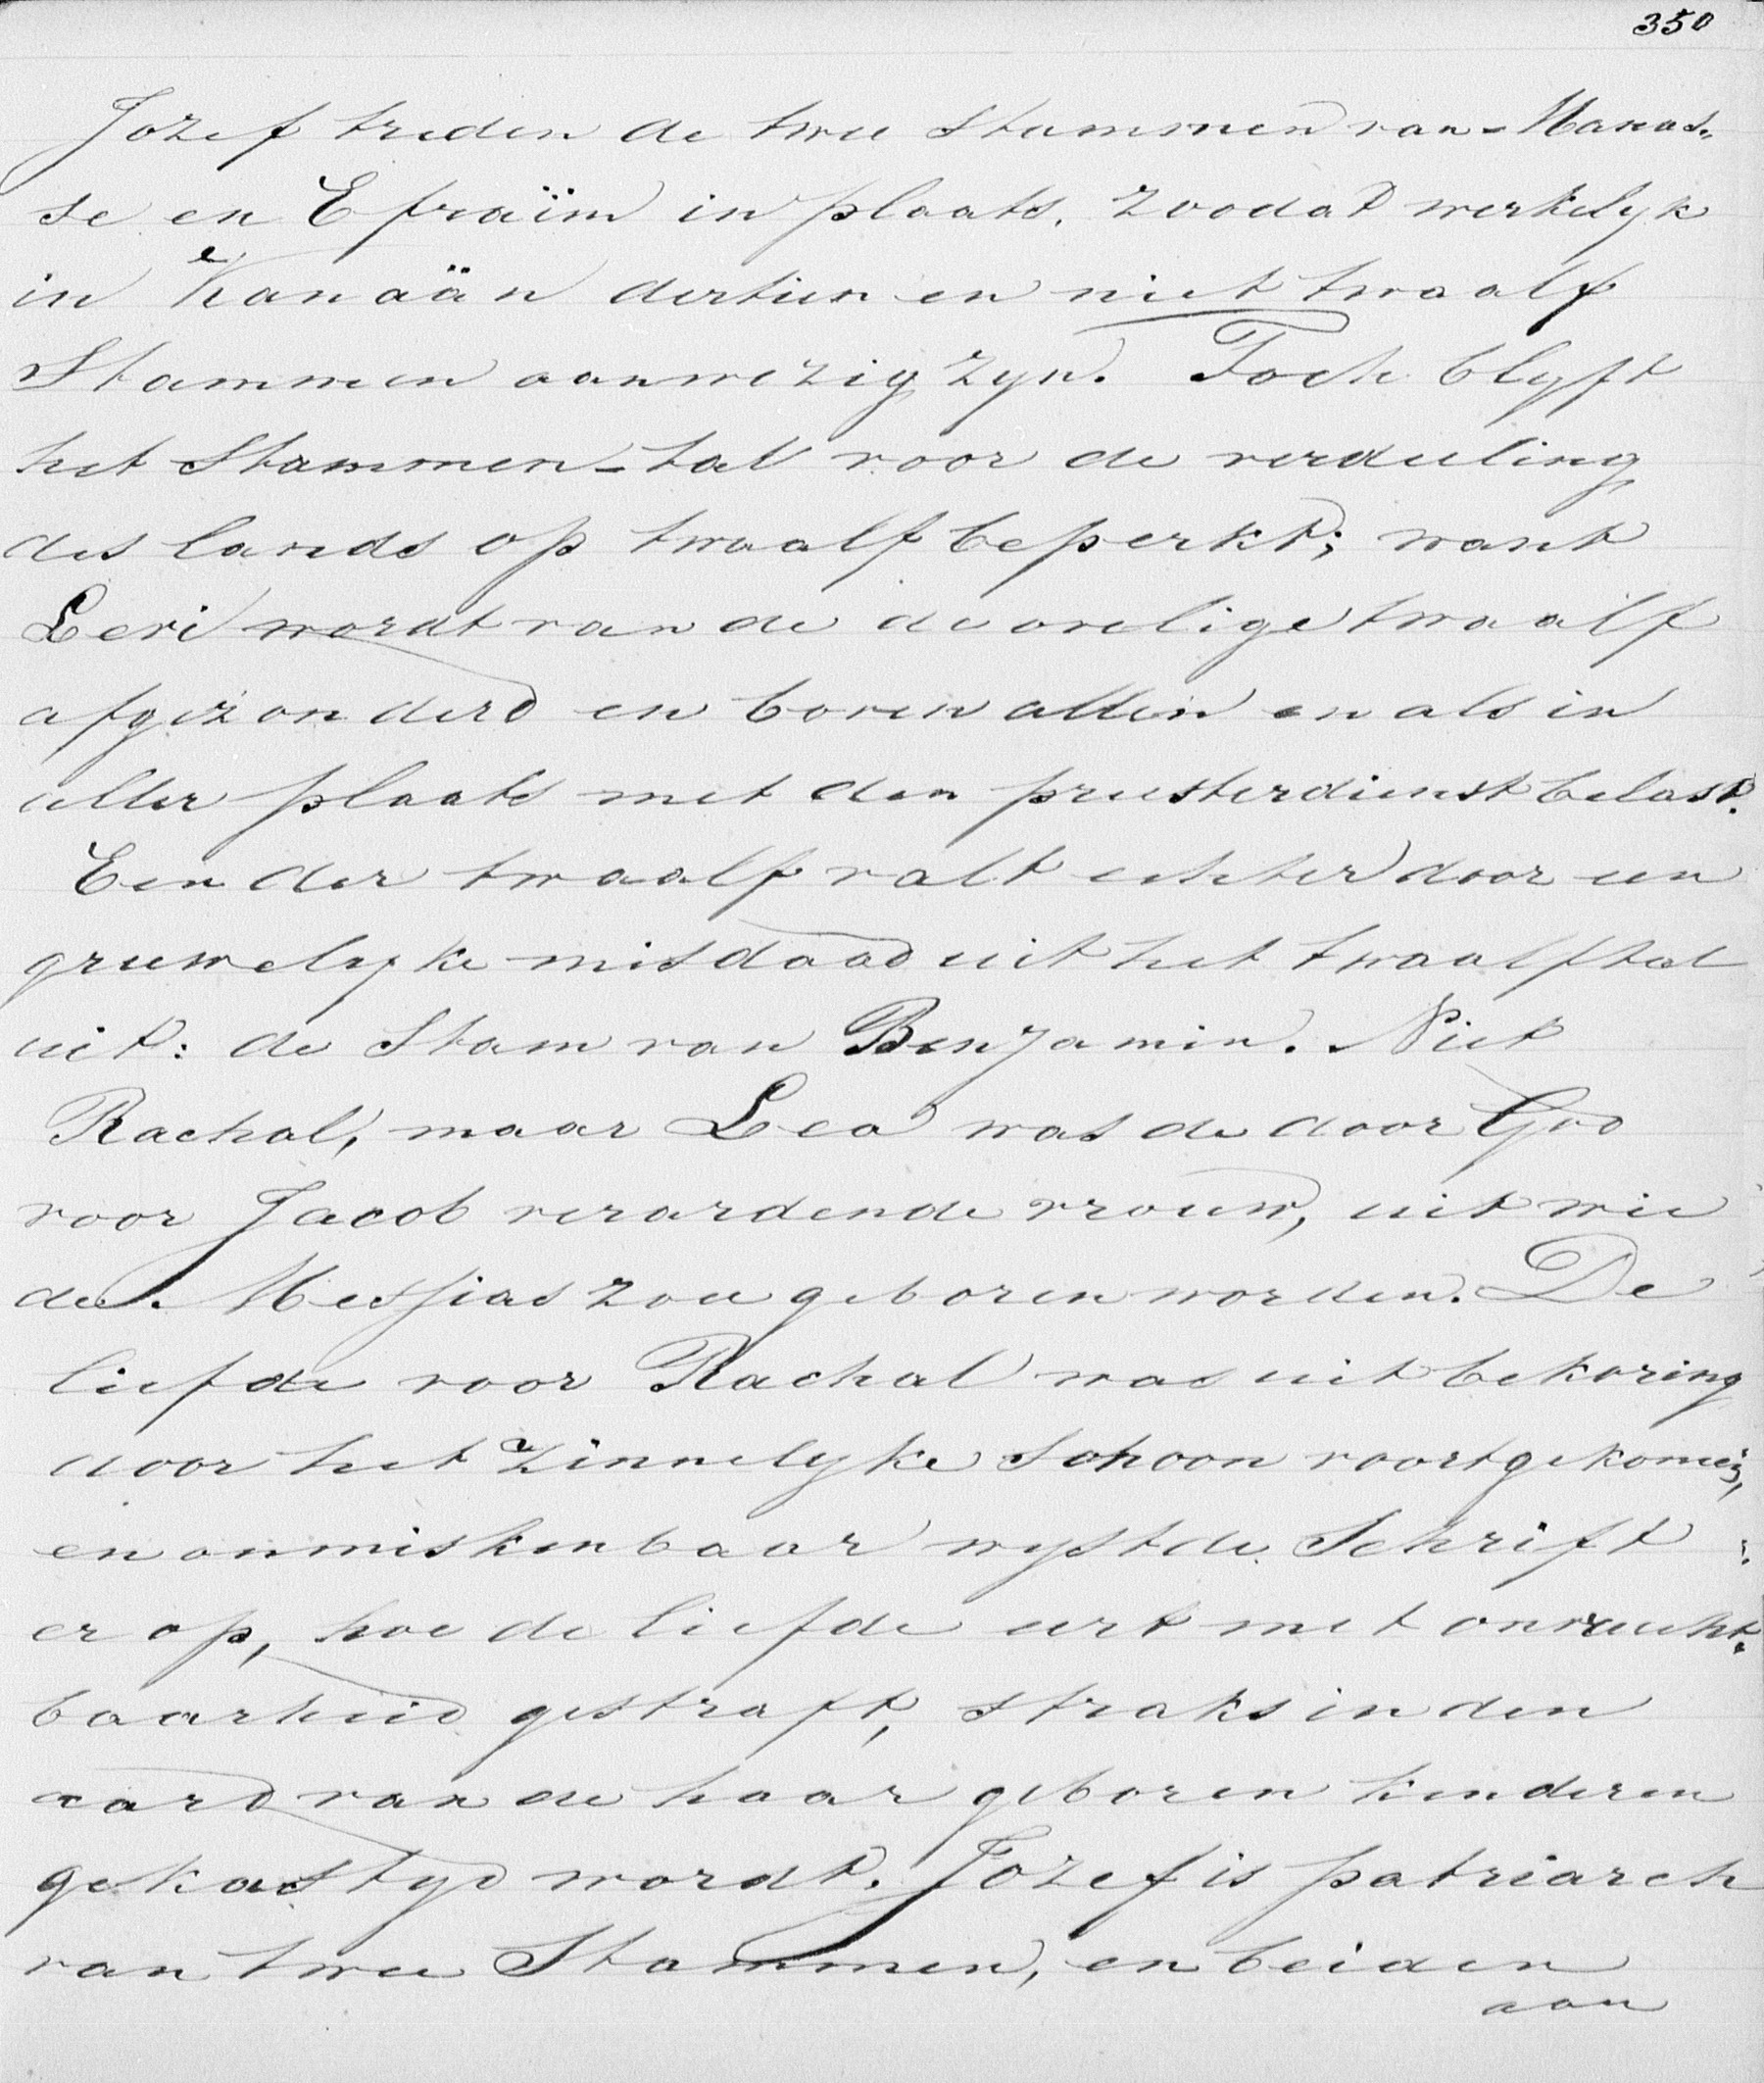 350
Jozef treden de twee Stammen van Manas„
se en Efraïm in plaats, zoodat werkelyk
in Kanaän dertien en niet twaalf
Stammen aanwezig zyn. Toch blyft
het Stammen-tal voor de verdeeling
des lands op twaalf beperkt; want
Levi wordt van de de overige twaalf
afgezonderd en boven allen en als in
aller plaats met den priesterdienst belast.
Een der twaalf valt echter door een
gruwelyke misdaad uit het twaalftal
uit: de Stam van Benjamin. Niet
Rachal, maar Lea was de door God
voor Jacob verordende vrouw, uit wie
de Messias zou geboren worden. De
liefde voor Rachal was uit bekoring
door het Zinnelyke Schoon voortgekomen,
en onmiskenbaar wyst de Schrift
er op, hoe de liefde eerst met onvrucht„
baarheid gestraft, straks in den
aard van de haar geboren kinderen
gekastyd wordt. Jozef is patriarch
van twee Stammen, en beiden
aan